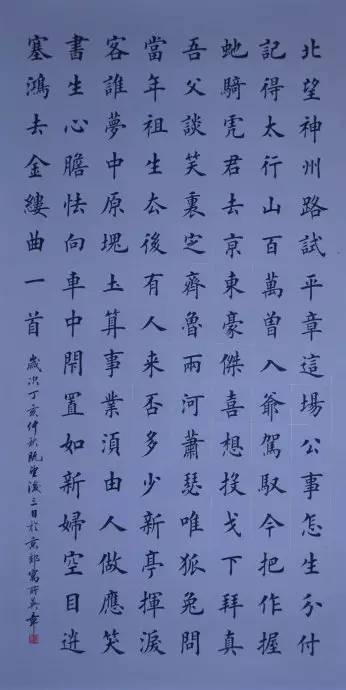 北望神州路試平章這場公事怎生分付
記得太行山百萬曽入爺駕馭今把作握
虵騎虎君去京東豪傑喜想投戈下拜真
吾父談笑裏定齊魯兩河蕭瑟唯狐兔問
當年祖生去後有人来否多少新亭揮淚
客誰夢中原塊土算事業須由人做應笑
書生心膽怯向車中閇置如新婦空目送
塞鴻去金縷曲一首
歲次丁亥仲秋既望後三日於京郊寓所